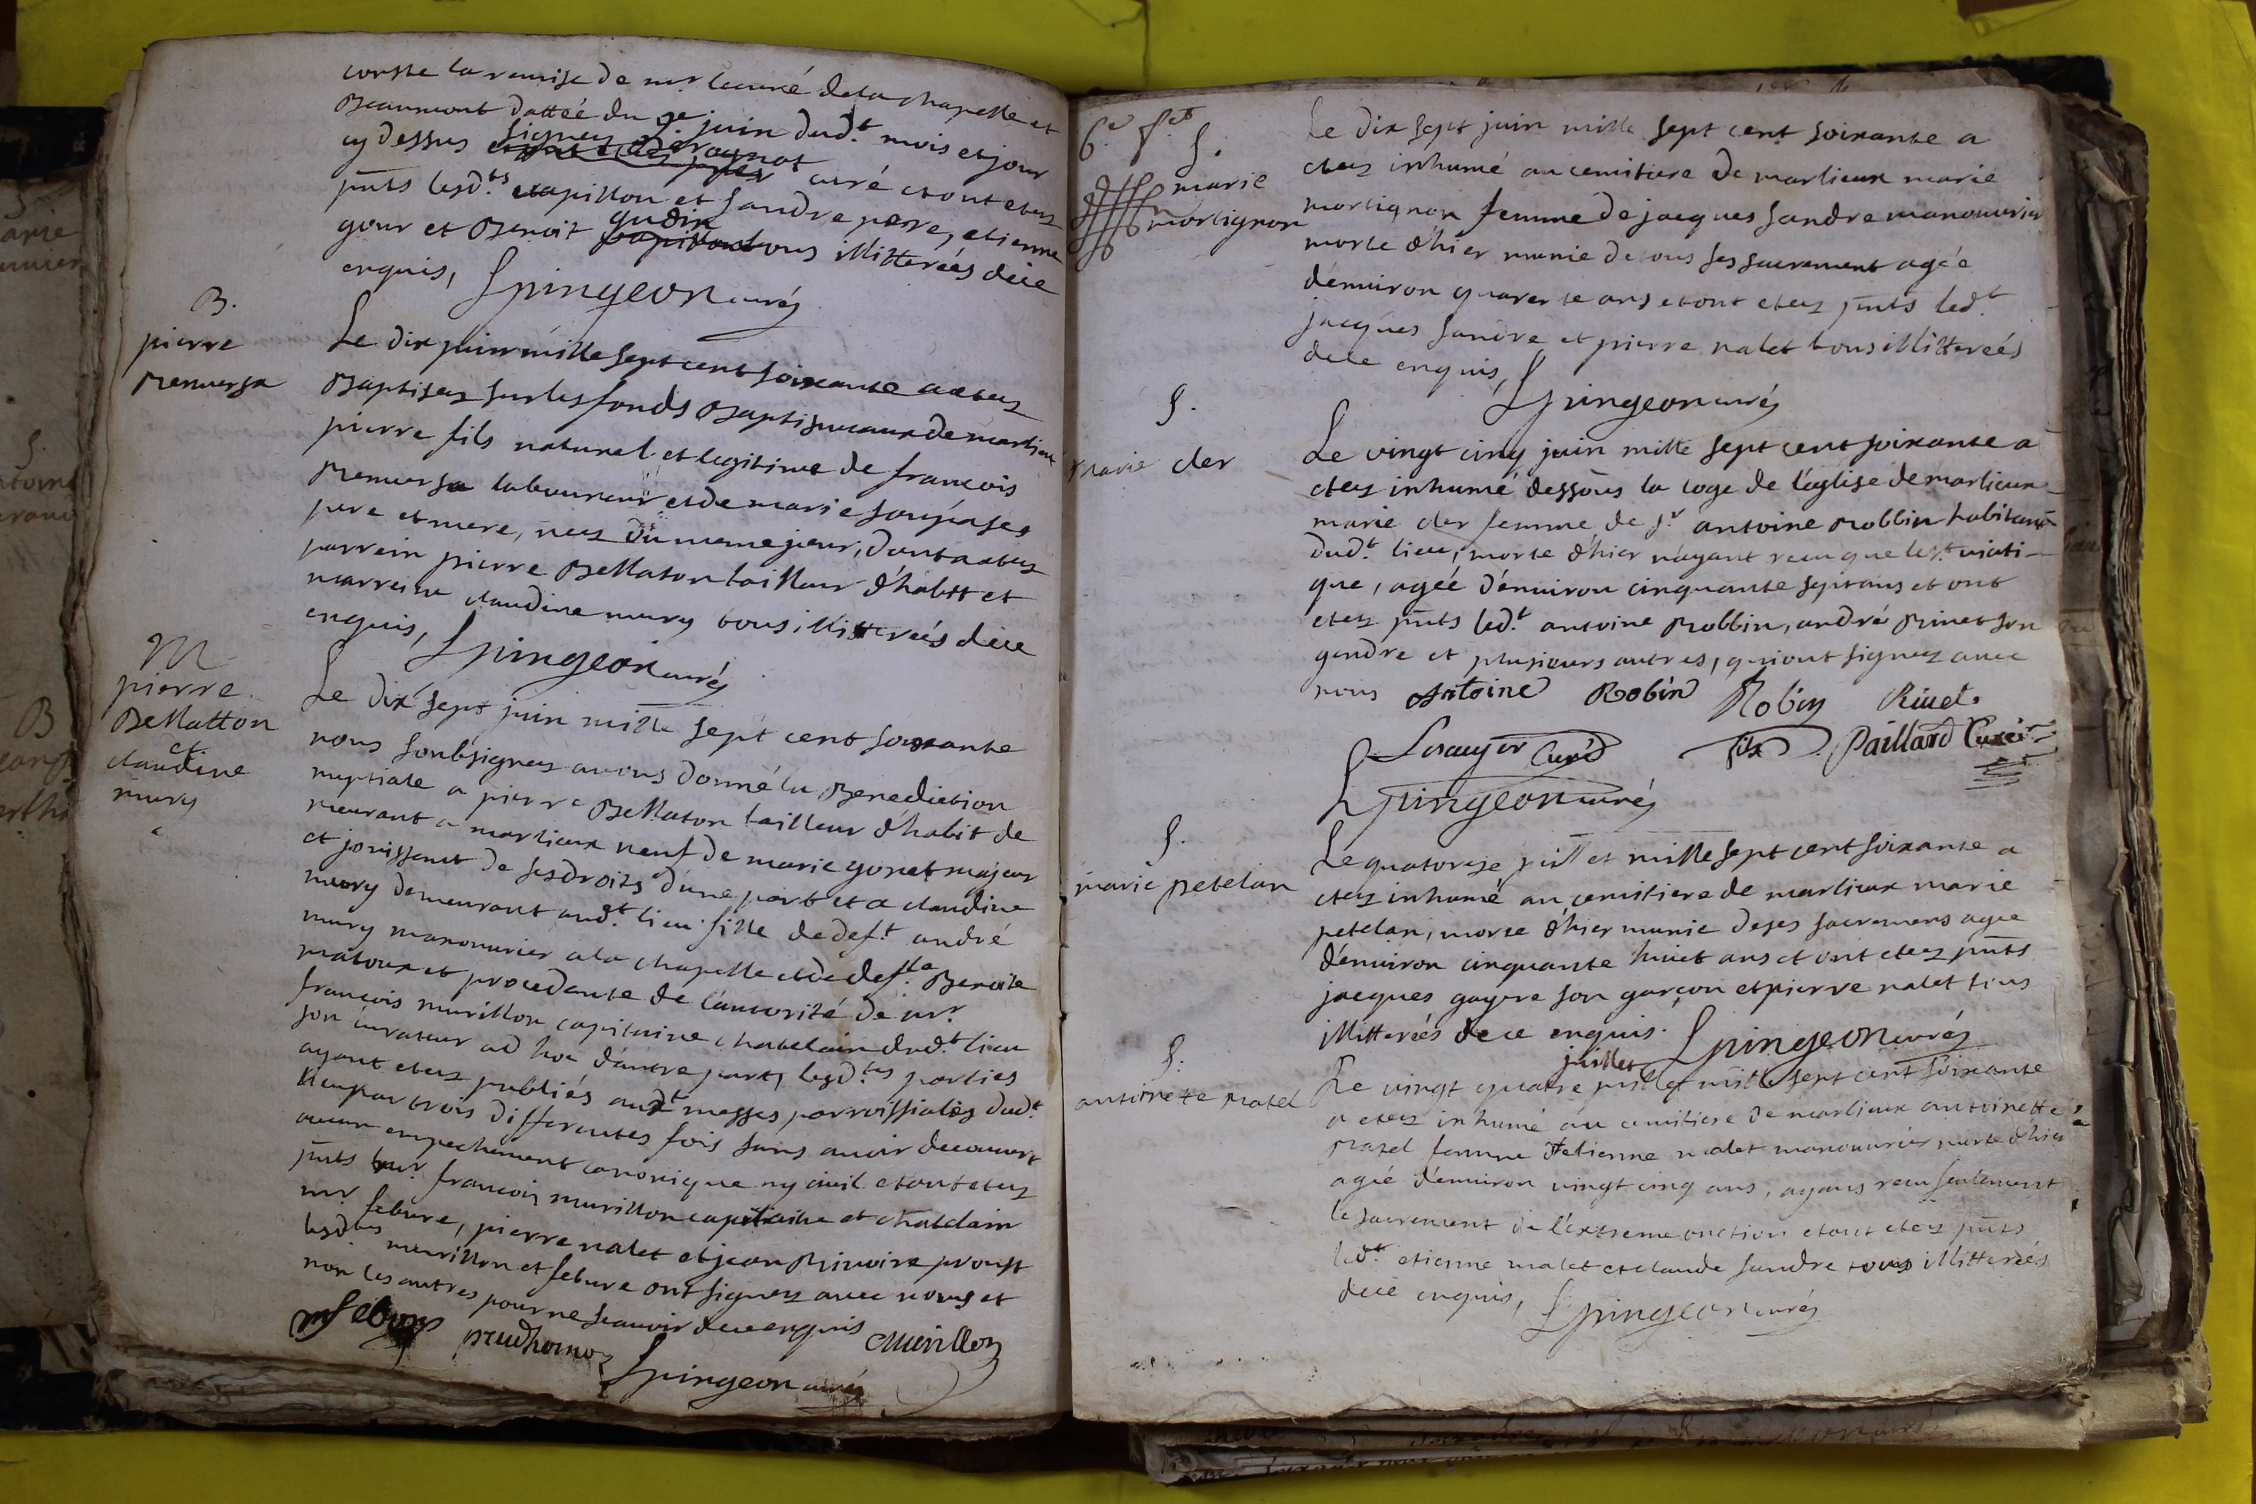 conste la remise de mr le curé de la chapelle et
Beaumont dattéé du 9e juin dud.t mois et jour
cy dessus signez curé et ont etez
pnts lesd.ts papillon et sandre pere, etienne
gour et Benoit gudin tous illitterées dece
enquis, Spingeon curéz
B.
pierre
Renversa
Le dix juin mille sept cent soixante a etez
Baptisez sur les fonds Baptismeaux de marlieux
pierre fils naturel et legitime de francois
Renversa laboureur et de marie
pere et mere, nez du meme jour, dont a etez
parrein pierre Bellaton tailleur d'habit et
marreine claudine mury tous illitterées dece
enquis, Spingeon curéz
M
pierre
Bellatton
et
claudine
mury
Le dix sept juin mille sept cent soixante
nous soubsignez avons donné la Benediction
nuptiale a pierre Bellaton tailleur d'habit de
meurant a marlieux veuf de marie gonet majeur
et jouissant de ses droits d'une part et a claudine
mury demeurant aud.t lieu fille de def.t andré
mury manouvrier a la chapelle et de def.te Benoite
matoux et procedante de l'autorité de mr.
francois murillon capitaine chatelain dud.t lieu
son curateur ad hoc d'autre part, lesd.tes parties
ayant etez publiés aud.t messes parroissiales dud.t
lieu par trois differentes fois sans avoir decouvert
aucun empechement canonique ny civil et ont etez
pnts mr francois murillon capitaine et chatelain
mr febvre, pierre nalet et jean Rivoire proust
lesdtes murillon et febvre ont signez avec nous et
non les autres pour ne scavoir dece enquis
prudhomo murillon
Spingeon curéz
6e f.et
S.
marie
mortignon
Le dix sept juin mille sept cent soixante a
etez inhumé au cemitiere de marlieux marie
mortignon femme de jacques sandre manouvrier
morte d'hier munie de tous ses sacrement agée
d'environ quarente ans et ont etez pnts led.t
jacques sandre et pierre nalet tous illitterées
dece enquis, Spingeon curéz
S.
marie cler
Le vingt cinq juin mille sept cent soixante a
etez inhumé dessous la loge de l'église de marlieux
marie cler femme de s.r antoine Robbin habitant
dud.t lieu, morte d'hier n'ayant recu que le s.t viati-
que, agéé d'environ cinquante sept ans et ont
etez pnts led.t antoine Robbin, andré Rivet son
gendre et plusieurs autres, qui ont signez avec
nous Antoine Robin Robin Rivet
Curé fils Paillard Curé
Spingeon curéz
S.
marie petelan
Le quatorze juillet mille sept cent soixante a
etez inhumé au cemitiere de marlieux marie
petelan, morte d'hier munie de ses sacremens agée
d'environ cinquante huict ans et ont etez pnts
jacques goyere son garçon et pierre nalet tous
illitterées de ce enquis. Spingeon curéz
S.
antoinette matel
juillet
Le vingt quatre juillet mille sept cent soixante
a etez inhumé au cemitiere de marlieux antoinette
matel femme d'etienne malet manouvrier morte d'hier
agée d'environ vingt cinq ans, ayans recu seulement
le sacrement de l'extreme onction et ont etez pnts
led.t etienne malet et claude sandre tous illitterées
dece enquis, Spingeon curéz